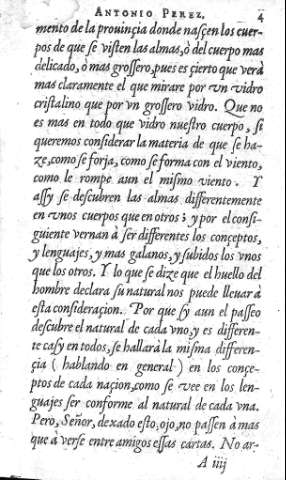 ANTONIO PEREZ. 4
mento de la prouinçia donde nasçen los cuer-
pos de que se visten las almas, ò del cuerpo mas
delicado, ò mas grossero, pues es çierto que verà
mas claramente el que mirare por vn vidro
cristalino que por vn grossero vidro. Que no
es mas en todo que vidro nuestro cuerpo, si
queremos considerar la materia de que se ha-
ze, como se forja, como se forma con el viento,
como le rompe aun el mismo viento. Y
assy se descubren las almas differentemente
en vnos cuerpos que en otros; y por el consi-
guiente vernan à ser differentes los conceptos,
y lenguajes, y mas galanos, y subidos los vnos
que los otros. Y lo que se dize que el huello del
hombre declara su natural nos puede lleuar à
esta consideraçion. Por que sy aun el passeo
descubre el natural de cada vno, y es differen-
te casy en todos, se hallarà la misma differen-
çia ( hablando en general ) en los conçe-
ptos de cada naçion, como se vee en los len-
guajes ser conforme al natural de cada vna.
Pero, Señor, dexado esto, ojo, no passen à mas
que à verse entre amigos essas cartas. No ar-
A iiij